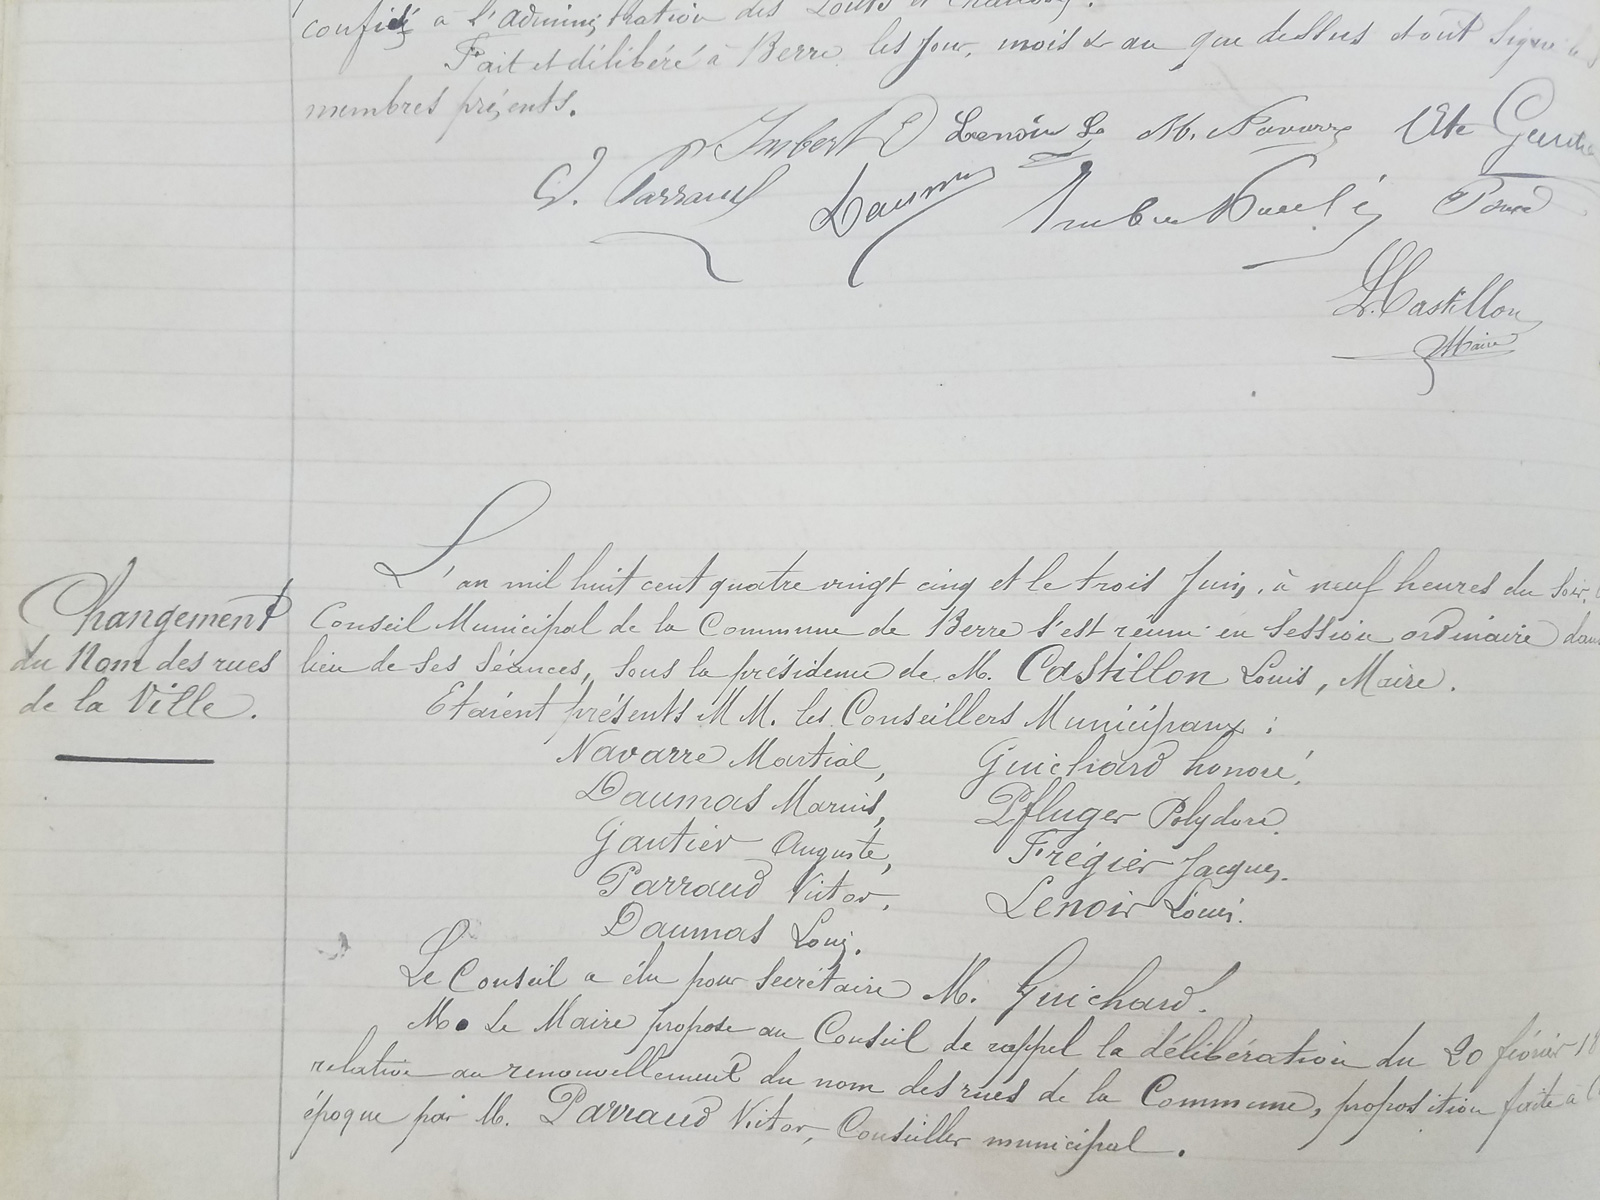 confié à l'administration des Ponts et Chaussés.
Fait et délibéré à Berre les jour, mois & an que dessus et ont signé les
membres présents.
Imbert Lenoir Ls M. Navarre Ate Gautier
V. Parraud Daumas
L. Castillon
Maire
Changement
du Nom des rues
de la Ville.
L'an mil huit cent quatre vingt cinq et le trois Juin, à neuf heures du soir,
Conseil Municipal de la Commune de Berre s'est réuni en session ordinaire dans
lieu de ses séances, sous la présidence de M. Castillon Louis, Maire.
Etaient présents MM. les Conseillers Municipaux :
Navarre Martial, Guichard honoré,
Daumas Marius, Pfluger Polydore.
Gautier Auguste, Frégier Jacques.
Parraud Victor, Lenoir Louis.
Daumas Louis.
Le Conseil a élu pour secrétaire M. Guichard.
M. Le Maire propose au Conseil de rappel la délibération du 20 février 18
relative au renouvellement du nom des rues de la Commune, proposition faite à
époque par M. Parraud Victor, Conseiller municipal.